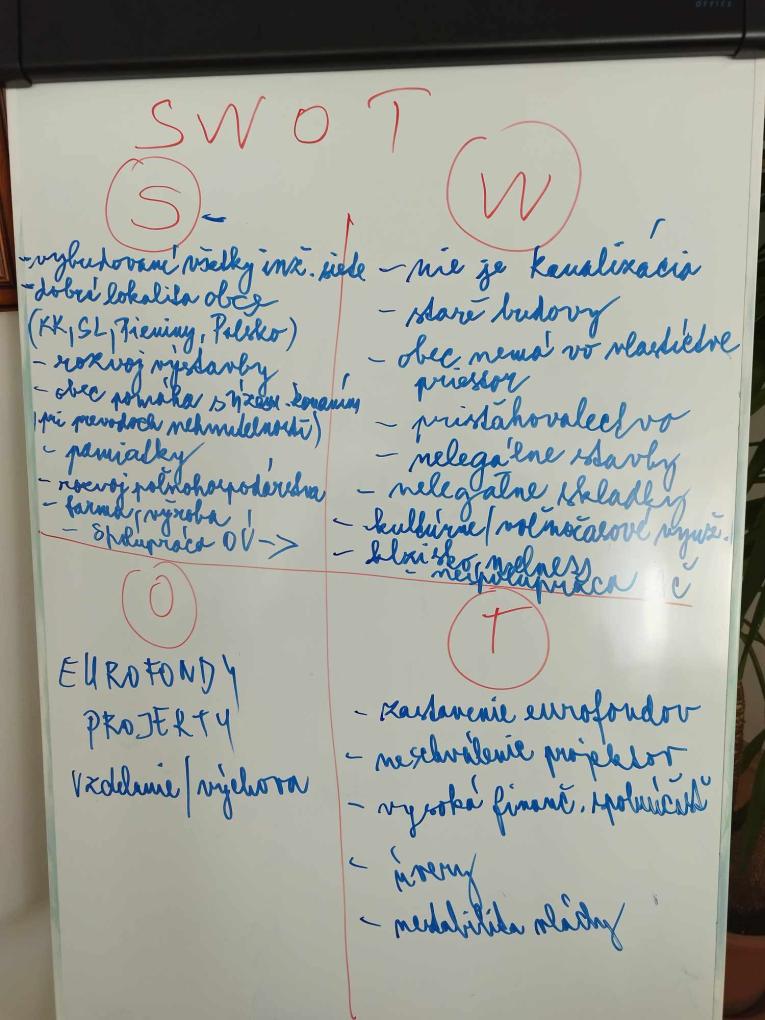 OFFICE
SWOT
S
- vybudované všetky inž. siete
- dobrá lokalita obce
(KK, SL, Pieniny, Poľsko)
- rozvoj výstavby
- obec pomáha s konaním
(pri prevodoch nehnuteľností)
- pamiatky
- rozvoj poľnohospodárstva
- farma, výroba
- spolupráca OÚ ->
W
- nie je kanalizácia
- staré budovy
- obec nemá vo vlastníctve
priestor
- prisťahovalectvo
- nelegálne stavby
- nelegálne skládky
- kultúrne/voľnočasové využ.
- blízisko, welness
- nespolupráca č
O
EUROFONDY
PROJEKTY
Vzdelanie/výchova
T
- zastavenie eurofondov
- neschválenie projektov
- vysoká finanč. spoluúčasť
- úvery
- nestabilita vlády